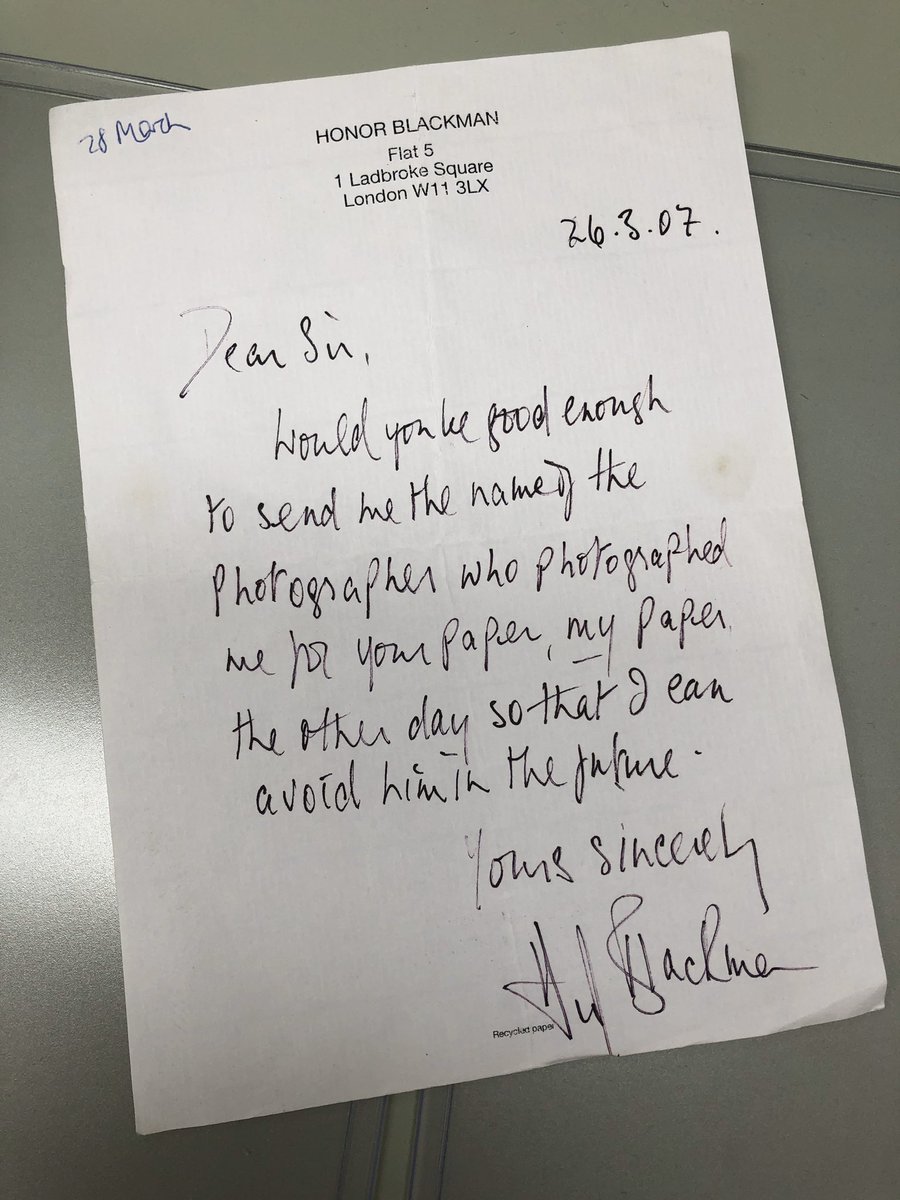 28 March
HONOR BLACKMAN
Flat 5
1 Ladbroke Square
London W11 3LX
26.3.07.
Dear Sir,
Would you be good enough
to send me the name of the
photographer who photographed
me for your paper, my paper,
the other day so that I can
avoid him in the future.
Yours sincerely
Honor Blackman
Recycled paper